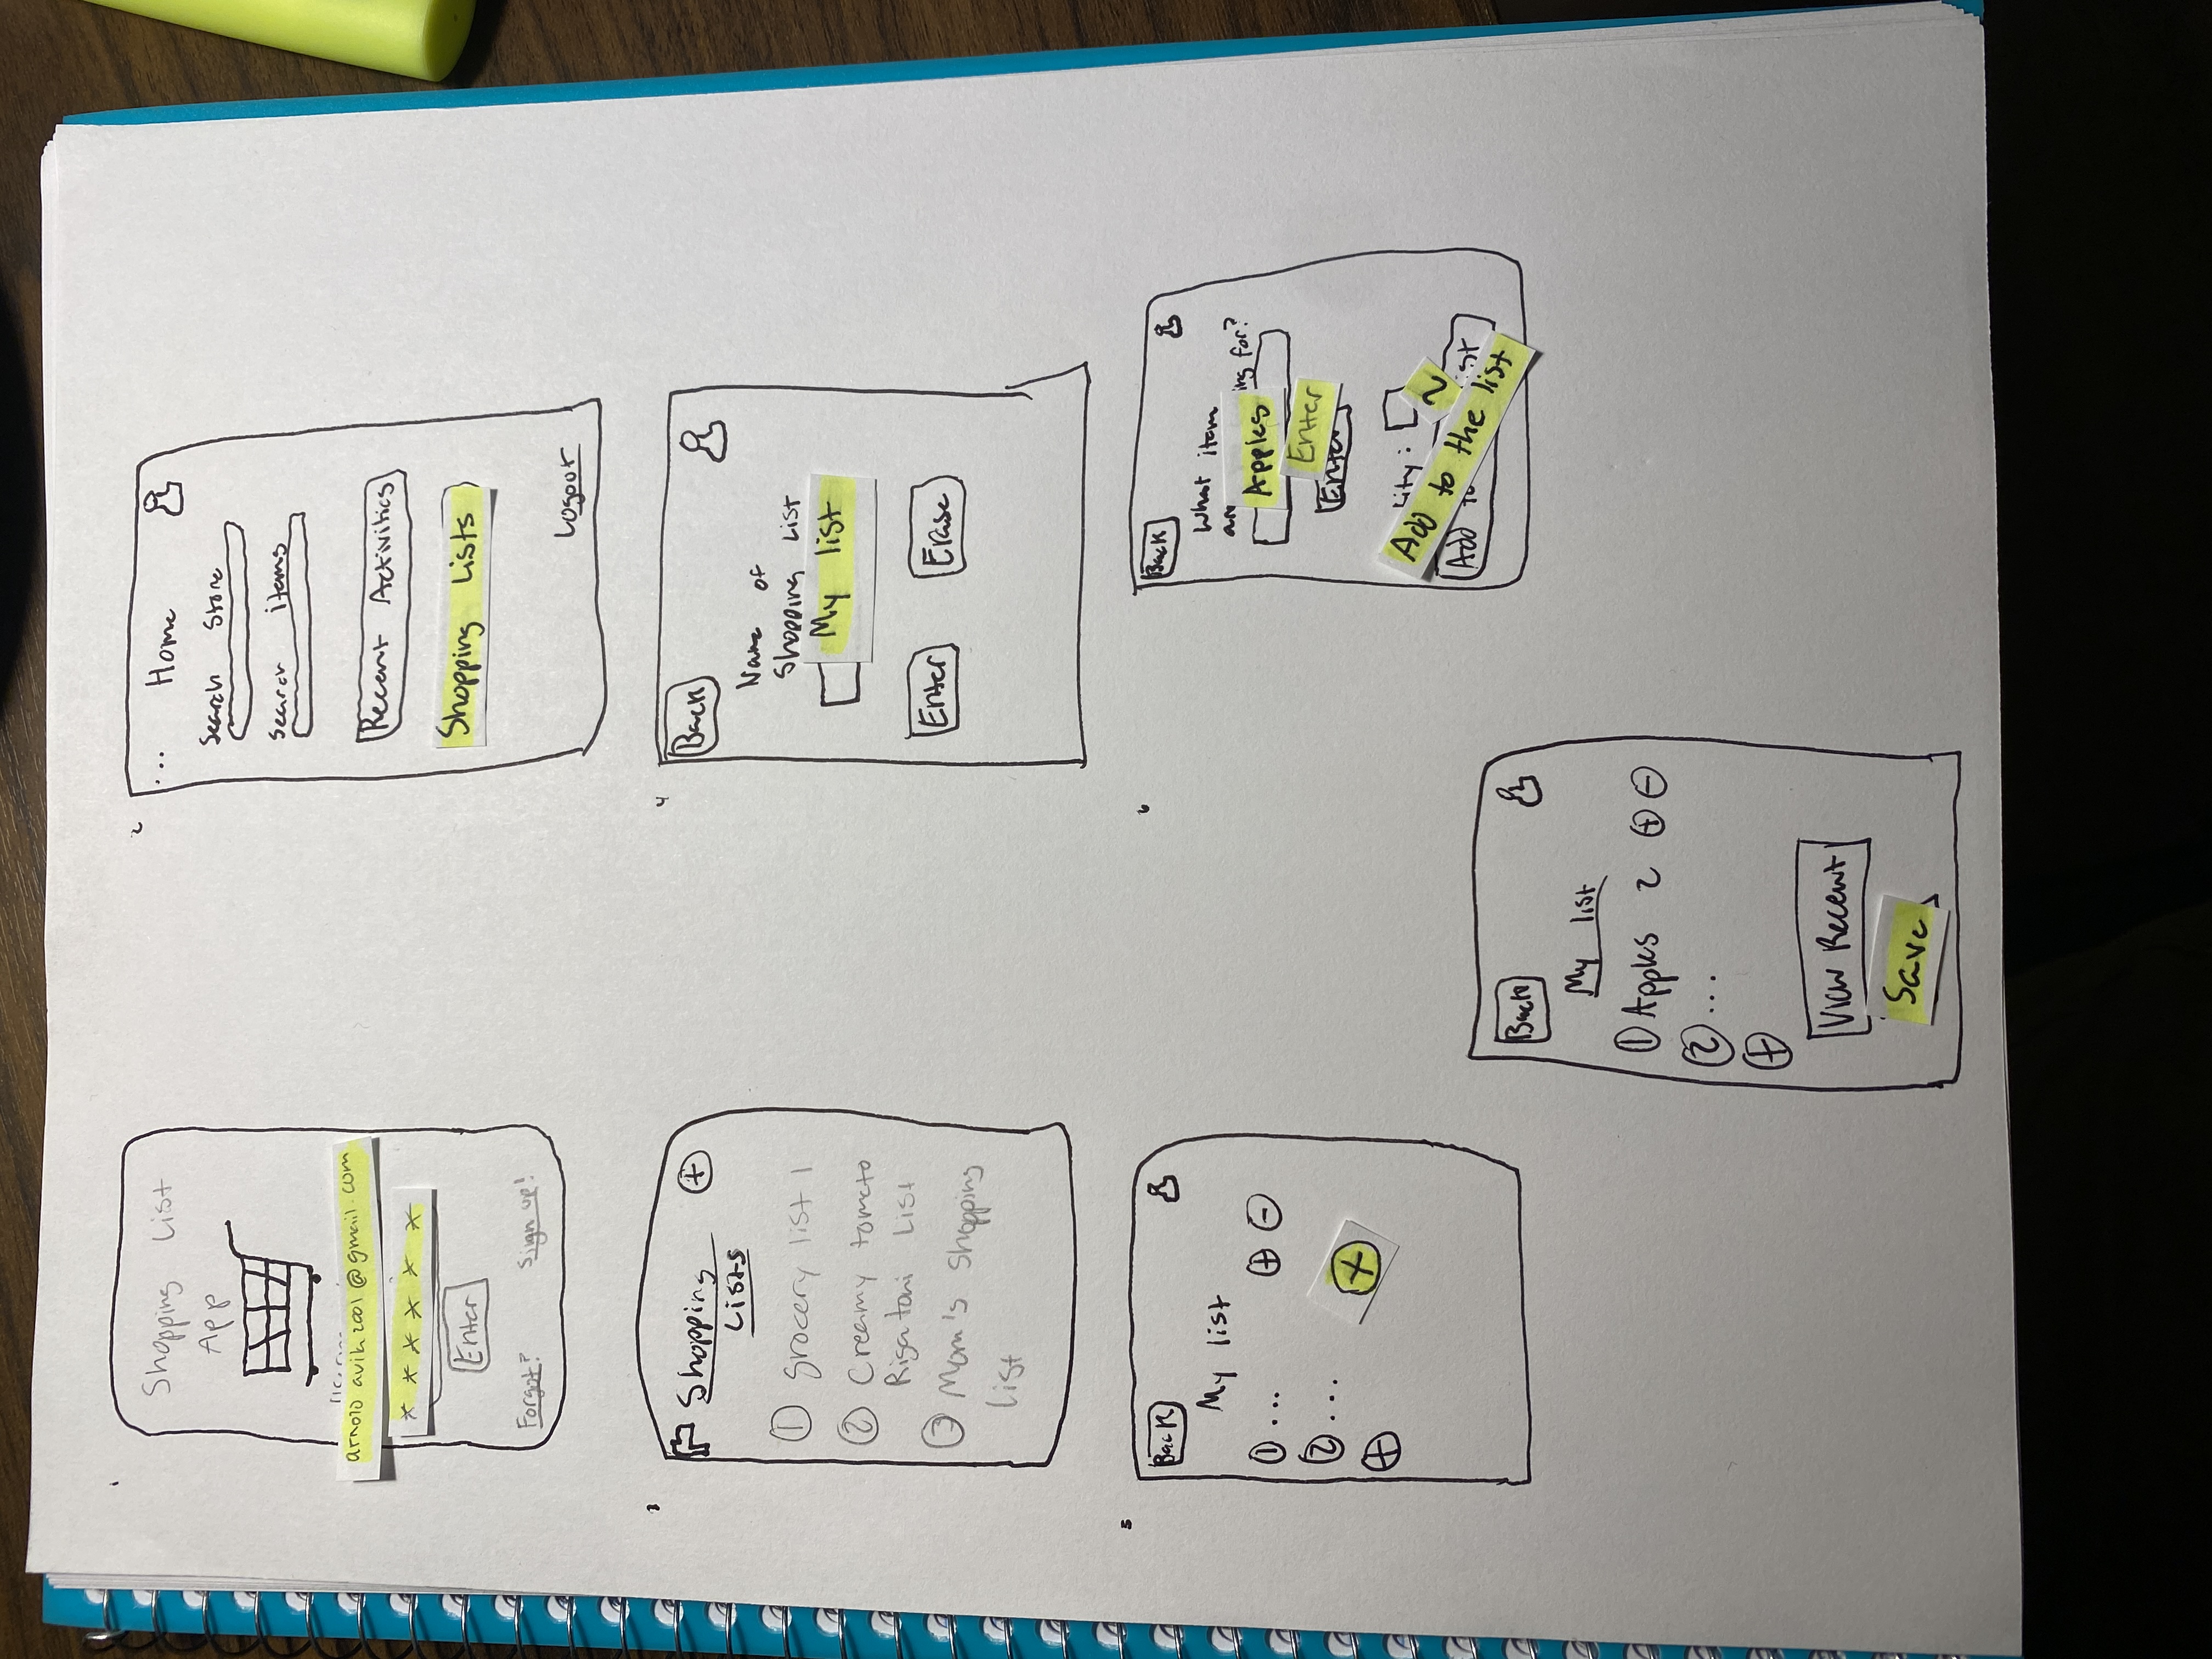 1
Shopping List
App
arnold avila2001@gmail.com
* * * * * *
Enter
Forgot? Sign up!
2
... Home
Search Store
Search items
Recent Activities
Shopping Lists
Logout
3
Shopping +
Lists
1 grocery list 1
2 Creamy tomato
Rigatoni List
3 Mom's Shopping
List
4
Back
Name of
Shopping List
My list
Enter Erase
5
Back
My list
1 ... + -
2 ...
+
+
6
Back
What item
are ing for?
Apples
Enter
Enter
lity:
2
Add to the list
Add to list
Back
My list
1 Apples 2 + -
2 ...
+
View Recent
Save